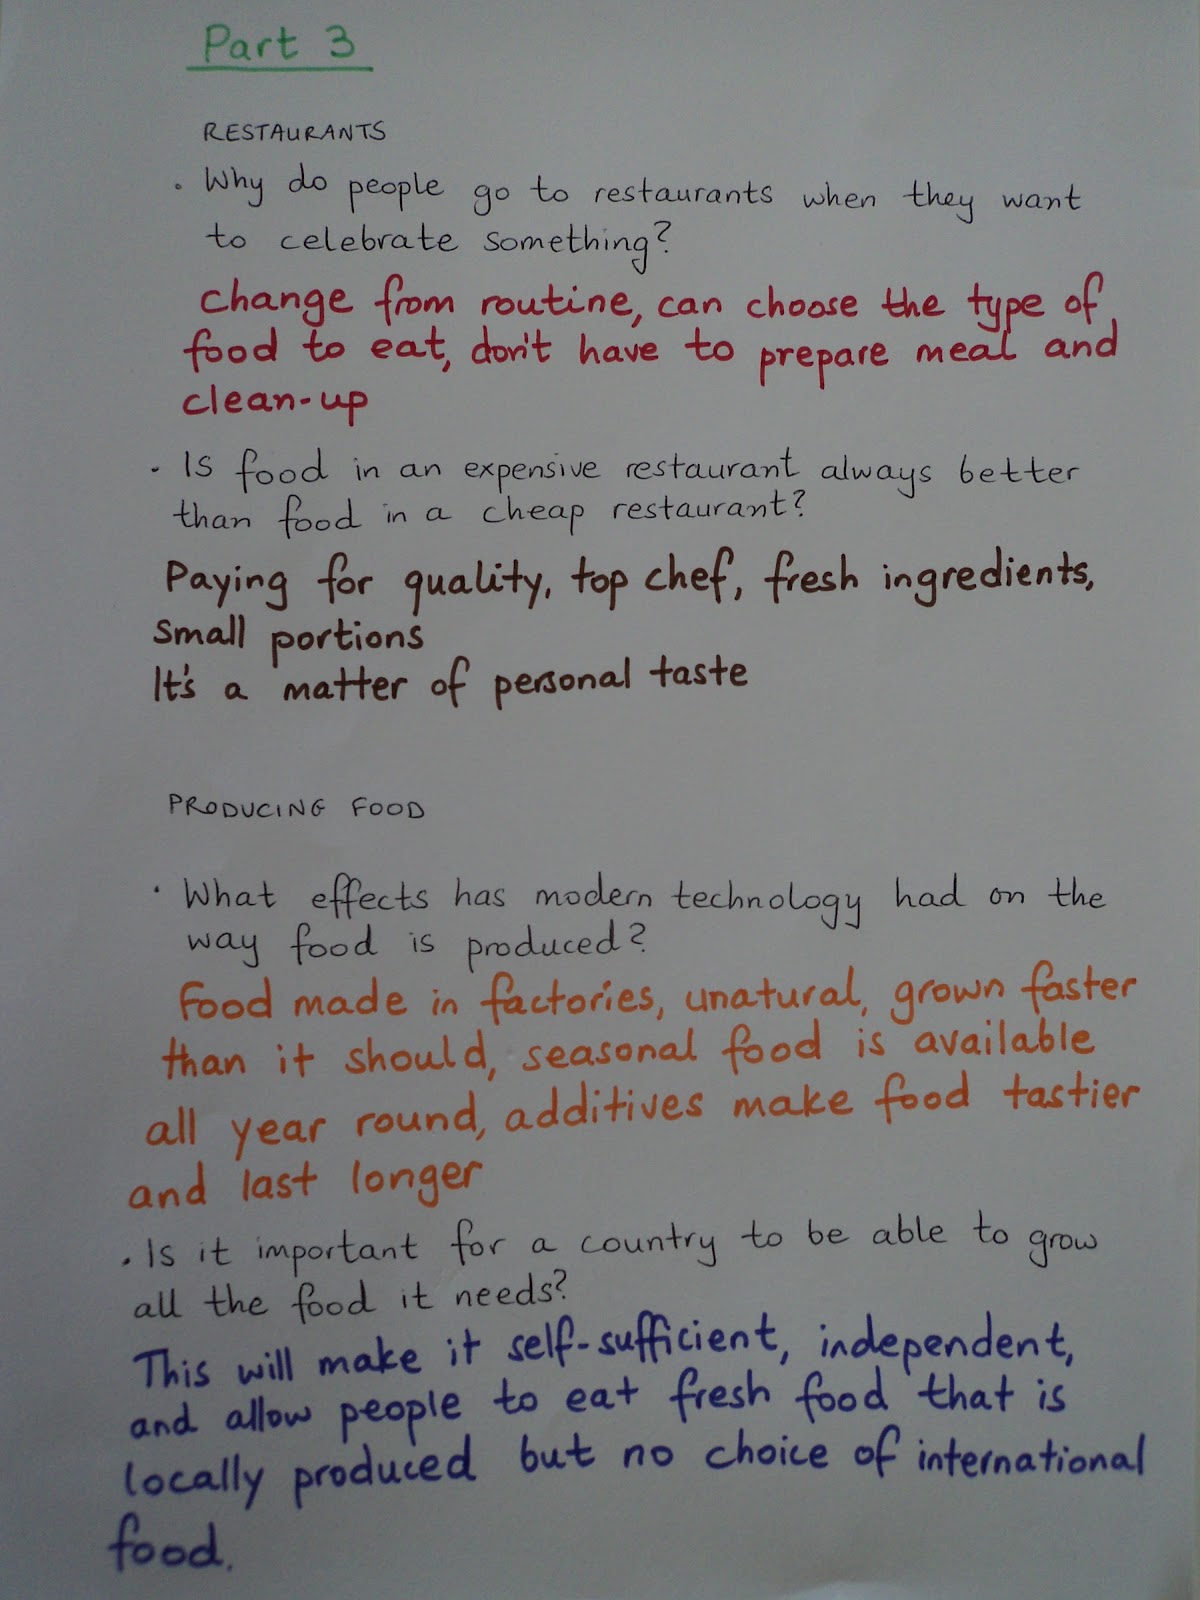 Part 3
RESTAURANTS
. Why do people go to restaurants when they want
to celebrate something?
Change from routine, can choose the type of
food to eat, don't have to prepare meal and
clean-up
. Is food in an expensive restaurant always better
than food in a cheap restaurant?
Paying for quality, top chef, fresh ingredients,
small portions
It's a matter of personal taste
PRODUCING FOOD
. What effects has modern technology had on the
way food is produced?
Food made in factories, unatural, grown faster
than it should, seasonal food is available
all year round, additives make food tastier
and last longer
. Is it important for a country to be able to grow
all the food it needs?
This will make it self-sufficient, independent,
and allow people to eat fresh food that is
locally produced but no choice of international
food.